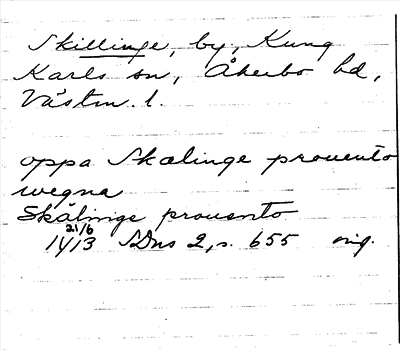 Skillinge, by, Kung
Karls sn, Åkerbo hd,
Västm. l.
oppa Skælinge prouento
wegna
Skälinge prouento
21/6
1413 SDns 2, s. 655 orig.